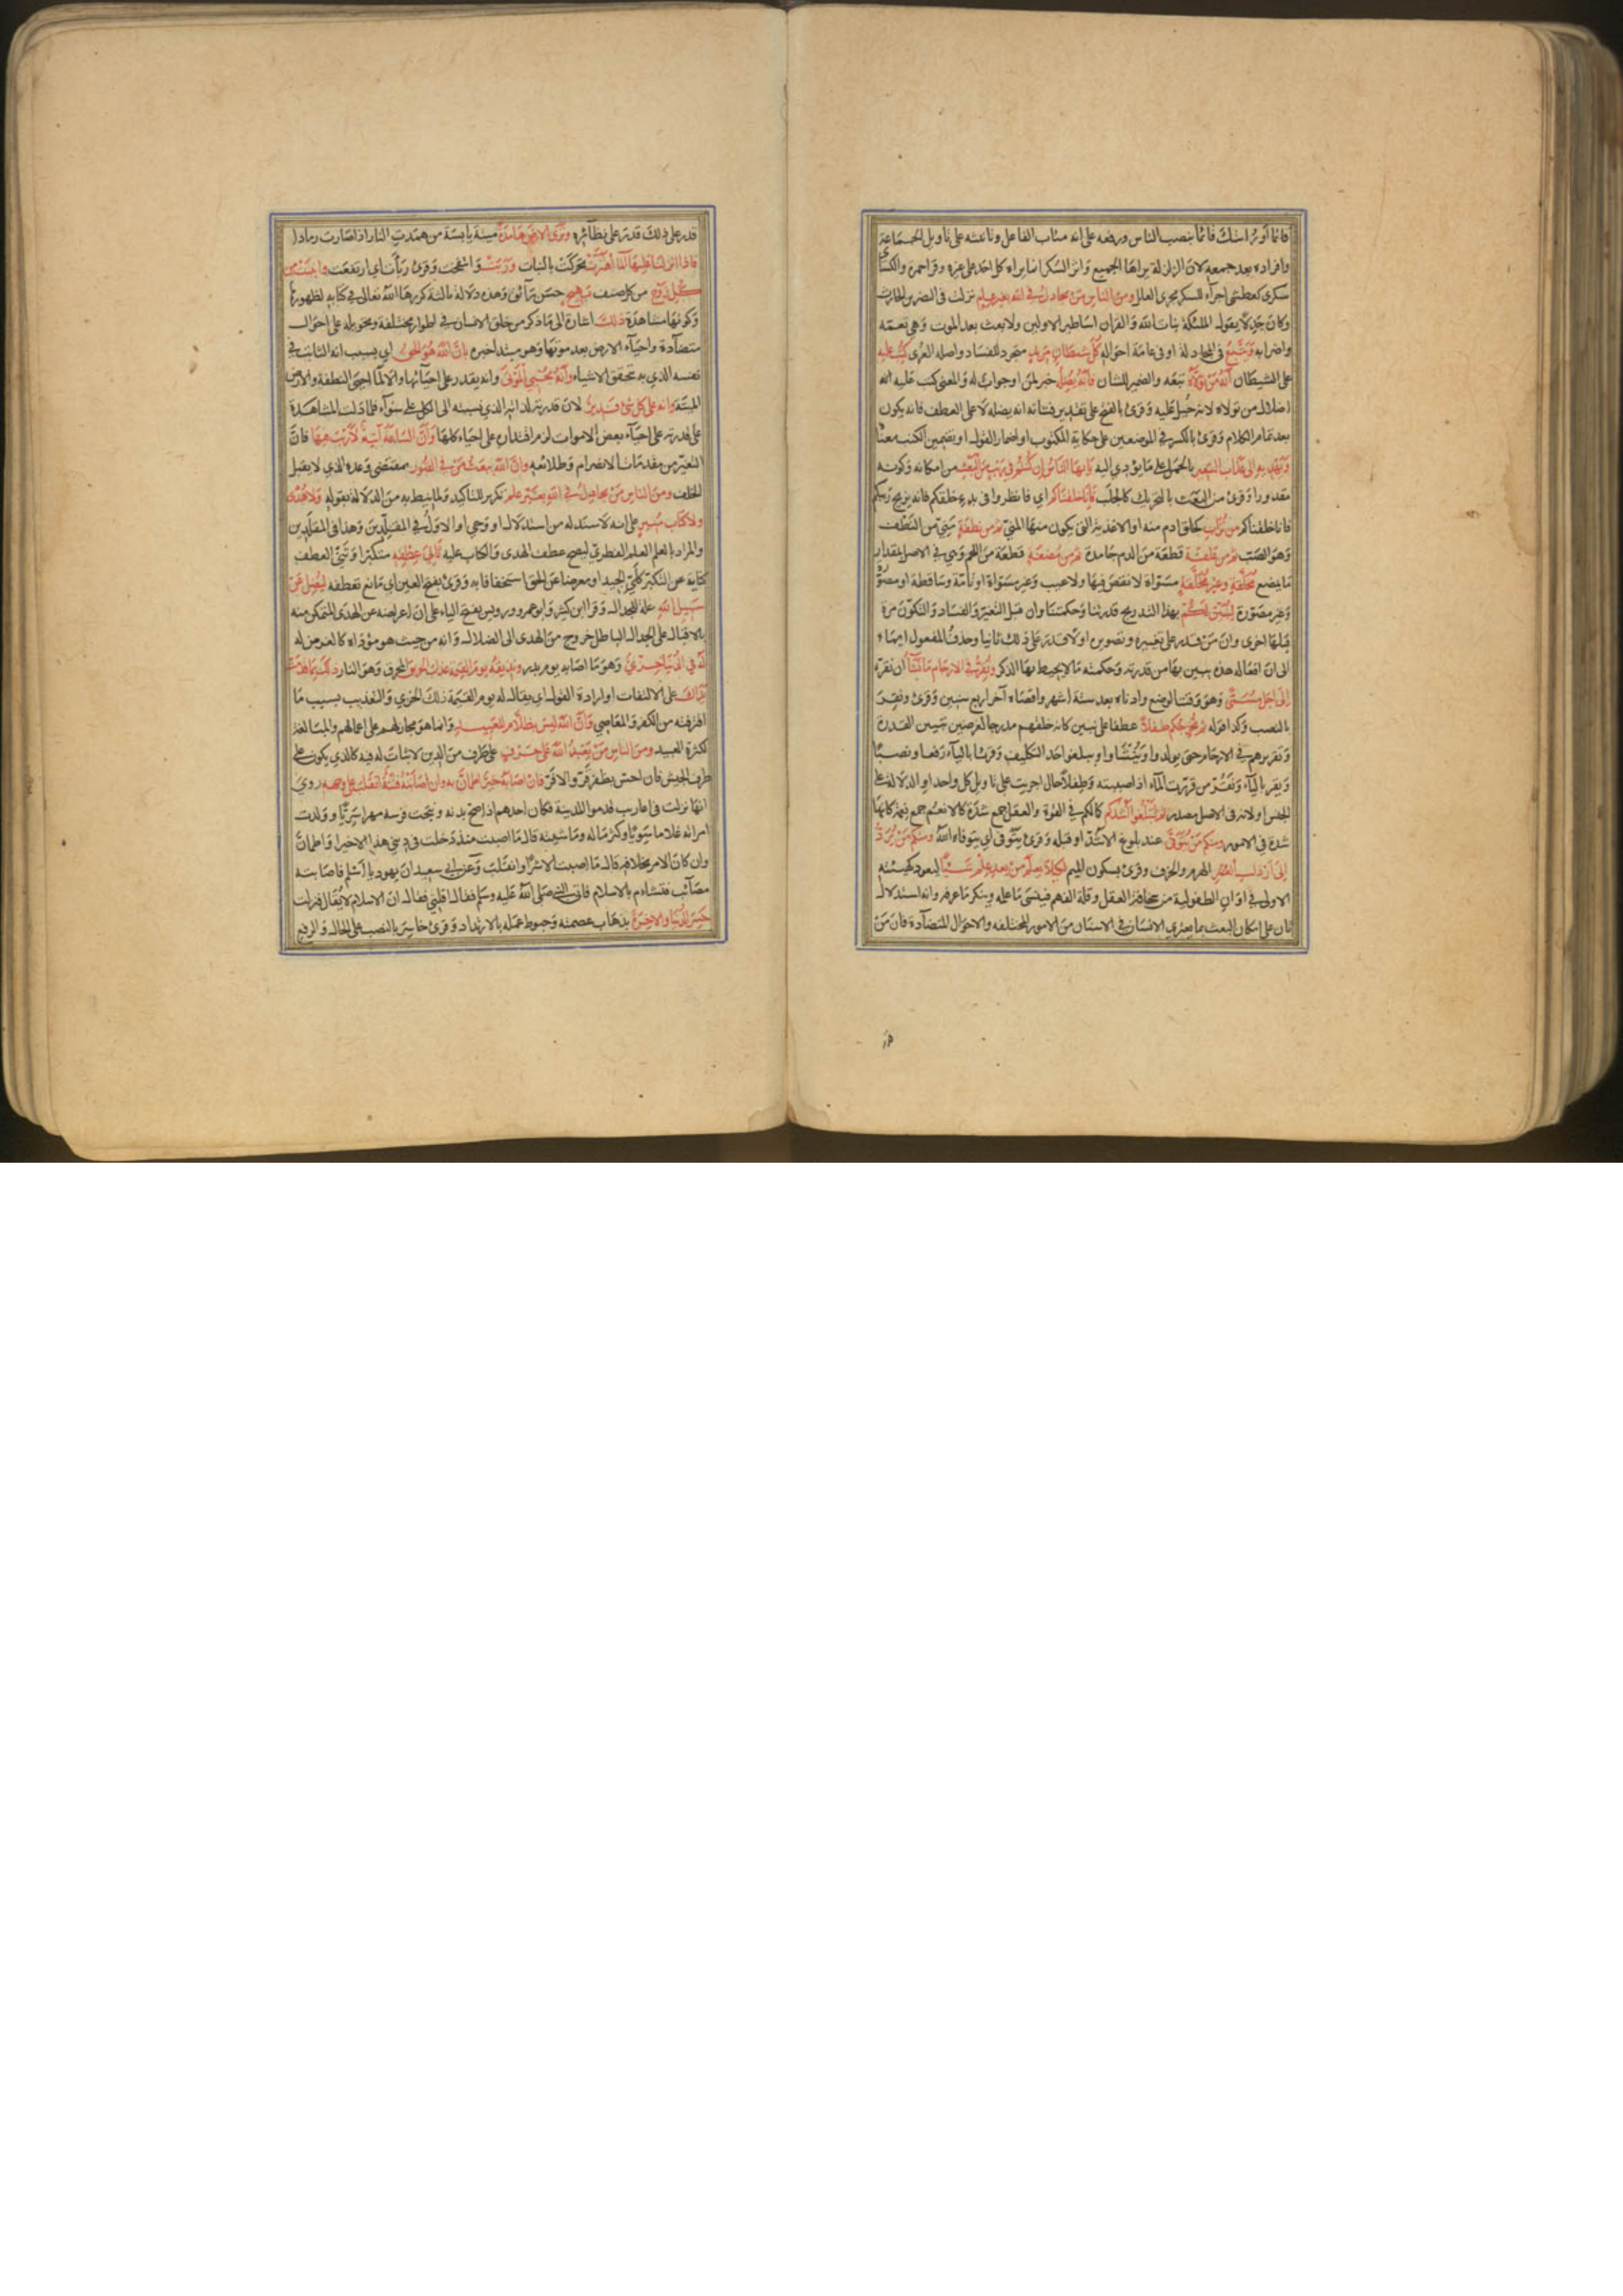 قائما او رايتك قائما بنصب الناس ورفعه على انه مناب الفاعل وتانيثه على تاويل الجماعة
وافراده بعد جمعه لان الزلزلة يراها الجميع واثر السكر انما يراه كل احد على غيره وقرا حمزة والكسائي
سكرى كعطشى اجرآء للسكر مجرى العلل ومن الناس من يجادل في الله بغير علم نزلت في النضر بن الحارث
وكان جدلا يقول الملئكة بنات الله والقران اساطير الاولين ولا بعث بعد الموت وهي تعمه
واضرابه ويتبع في المجادلة او في عامة احواله كل شيطان مريد متجرد للفساد واصله العرى كتب عليه
على الشيطان انه من تولاه تبعه والضمير للشان فانه يضله خبر لمن او جواب له والمعنى كتب عليه انه
اضلال من تولاه لانه جبل عليه وقرئ بالفتح على تقدير فشانه انه يضله لا على العطف فانه يكون
بعد تمام الكلام وقرئ بالكسر في الموضعين على حكاية المكتوب او اضمار القول او تضمين الكتب معناه
ويهديه الى عذاب السعير بالحمل على ما يؤدي اليه يا ايها الناس ان كنتم في ريب من البعث من امكانه وكونه
مقدورا وقرئ من البعث بالتحريك كالجلب فانا خلقناكم اي فانظروا في بدء خلقكم فانه يزيح ريبكم
فانا خلقناكم من تراب بخلق ادم منه او الاغذية التي يكون منها المني ثم من نطفة مني من النطف
وهو الصب ثم من علقة قطعة من الدم جامدة ثم من مضغة قطعة من اللحم وهي في الاصل بقدر
ما يمضغ مخلقة وغير مخلقة مسواة لا نقص فيها ولا عيب وغير مسواة او تامة وساقطة او مصورة
وغير مصورة لنبين لكم بهذا التدريج قدرتنا وحكمتنا وان ما قبل التغير والفساد والتكون مرة
قبلها اخرى وان من قدر على تغييره وتصويره اولا قدر على ذلك ثانيا وحذف المفعول ايماء
الى ان افعاله هذه يتبين بها من قدرته وحكمته ما لا يحيط بها الذكر ونقر في الارحام ما نشآ ان نقره
الى اجل مسمى وهو وقت الوضع وادناه بعد ستة اشهر واقصاه آخر اربع سنين وقرئ ونقر
بالنصب وكذا قوله ثم نخرجكم طفلا عطفا على نبين كان خلقهم مدرجا لغرضين تبيين القدرة
وتقريرهم في الارحام حتى يولدوا وينشئوا ويبلغوا احد التكليف وقرئا باليآء رفعا ونصبا
ويقر باليآء ونقر من قررت المآء اذا صببته وطفلا حال اجريت على تاويل كل واحد او الدلالة على
الجنس او لانه في الاصل مصدر ثم لتبلغوا اشدكم كمالكم في القوة والعقل جمع شدة كالانعم جمع نعمة كانها
شدة في الامور ومنكم من يتوفى عند بلوغ الاشد او قبله وقرئ يتوفى اي يتوفاه الله ومنكم من يرد
الى ارذل العمر الهرم والخرف وقرئ بسكون الميم لكيلا يعلم من بعد علم شيئا ليعود كهيئته
الاولى في اوان الطفولية من سخافة العقل وقلة الفهم فينسى ما علمه وينكر ما عرفه وانه استدلال
ثان على امكان البعث بما يعتري الانسان في الاسنان من الامور المختلفة والاحوال المتضآدة فان من
قدر على ذلك قدر على نظآئره وترى الارض هامدة ميتة يابسة من همدت النار اذا صارت رمادا
فاذا انزلنا عليها المآ اهتزت تحركت بالنبات وربت وانتفخت وقرئ ربأت اي ارتفعت وانبتت من
كل زوج من كل صنف بهيج حسن رآئق وهذه دلالة ثالثة كررها الله تعالى في كتابه لظهورها
وكونها مشاهدة ذلك اشارة الى ما ذكر من خلق الانسان في اطوار مختلفة وتحويله على احوال
متضآدة واحيآء الارض بعد موتها وهو مبتدا خبره بان الله هو الحق اي بسبب انه الثابت في
نفسه الذي به تحقق الاشياء وانه يحيي الموتى وانه يقدر على احيآئها والا لما احيى النطفة والارض
الميتة وانه على كل شئ قدير لان قدرته لذاته الذي نسبته الى الكل على سوآء فلما دلت المشاهدة
على قدرته على احيآء بعض الاموات لزم اقتداره على احياء كلها وان الساعة آتية لا ريب فيها فان
التغير من مقدمات الانصرام وطلائعه وان الله يبعث من في القبور بمقتضى وعده الذي لا يقبل
الخلف ومن الناس من يجادل في الله بغير علم تكرير للتاكيد ولما نيط به من الدلالة بقوله ولا هدى
ولا كتاب منير على انه لا سند له من استدلال او وحي او الاول في المقلدين وهذا في المقلدين
والمراد بالعلم العلم الفطري ليصح عطف الهدى والكتاب عليه ثاني عطفه متكبرا وثنى العطف
كناية عن التكبر كلي الجيد او معرضا عن الحق استخفافا به وقرئ بفتح العين اي مانع تعطفه ليضل عن
سبيل الله علة للجدال وقرا ابن كثير وابو عمرو ورويس بفتح الياء على ان اعراضه عن الهدى المتمكن منه
بالاقبال على الجدال الباطل خروج من الهدى الى الضلال وانه من حيث هو مؤداه كالغرض له
له في الدنيا خزي وهو ما اصابه يوم بدر ونذيقه يوم القيمة عذاب الحريق المحرق وهو النار ذلك بما قدمت
يداك على الالتفات او ارادة القول اي يقال له يوم القيمة ذلك الخزي والتعذيب بسبب ما
اقترفته من الكفر والمعاصي وان الله ليس بظلام للعبيد وانما هو مجاز لهم على اعمالهم والمبالغة
لكثرة العبيد ومن الناس من يعبد الله على حرف على طرف من الدين لا ثبات له فيه كالذي يكون على
طرف الجيش فان احس بظفر قر والا فر فان اصابه خير اطمان به وان اصابته فتنة انقلب على وجهه روي
انها نزلت في اعاريب قدموا المدينة فكان احدهم اذا صح بدنه ونتجت فرسه مهرا سريا وولدت
امراته غلاما سويا وكثر ماله وماشيته قال ما اصبت منذ دخلت في ديني هذا الا خيرا واطمان
وان كان الامر بخلافه قال ما اصبت الا شرا وانقلب وعن ابي سعيد ان يهوديا اسلم فاصابته
مصآئب فتشاءم بالاسلام فاتى النبي صلى الله عليه وسلم فقال اقلني فقال ان الاسلام لا يقال فنزلت
خسر الدنيا والاخرة بذهاب عصمته وحبوط عمله بالارتداد وقرئ خاسر بالنصب على الحال والرفع